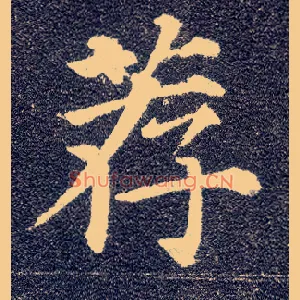 荐
Shufawang.CN